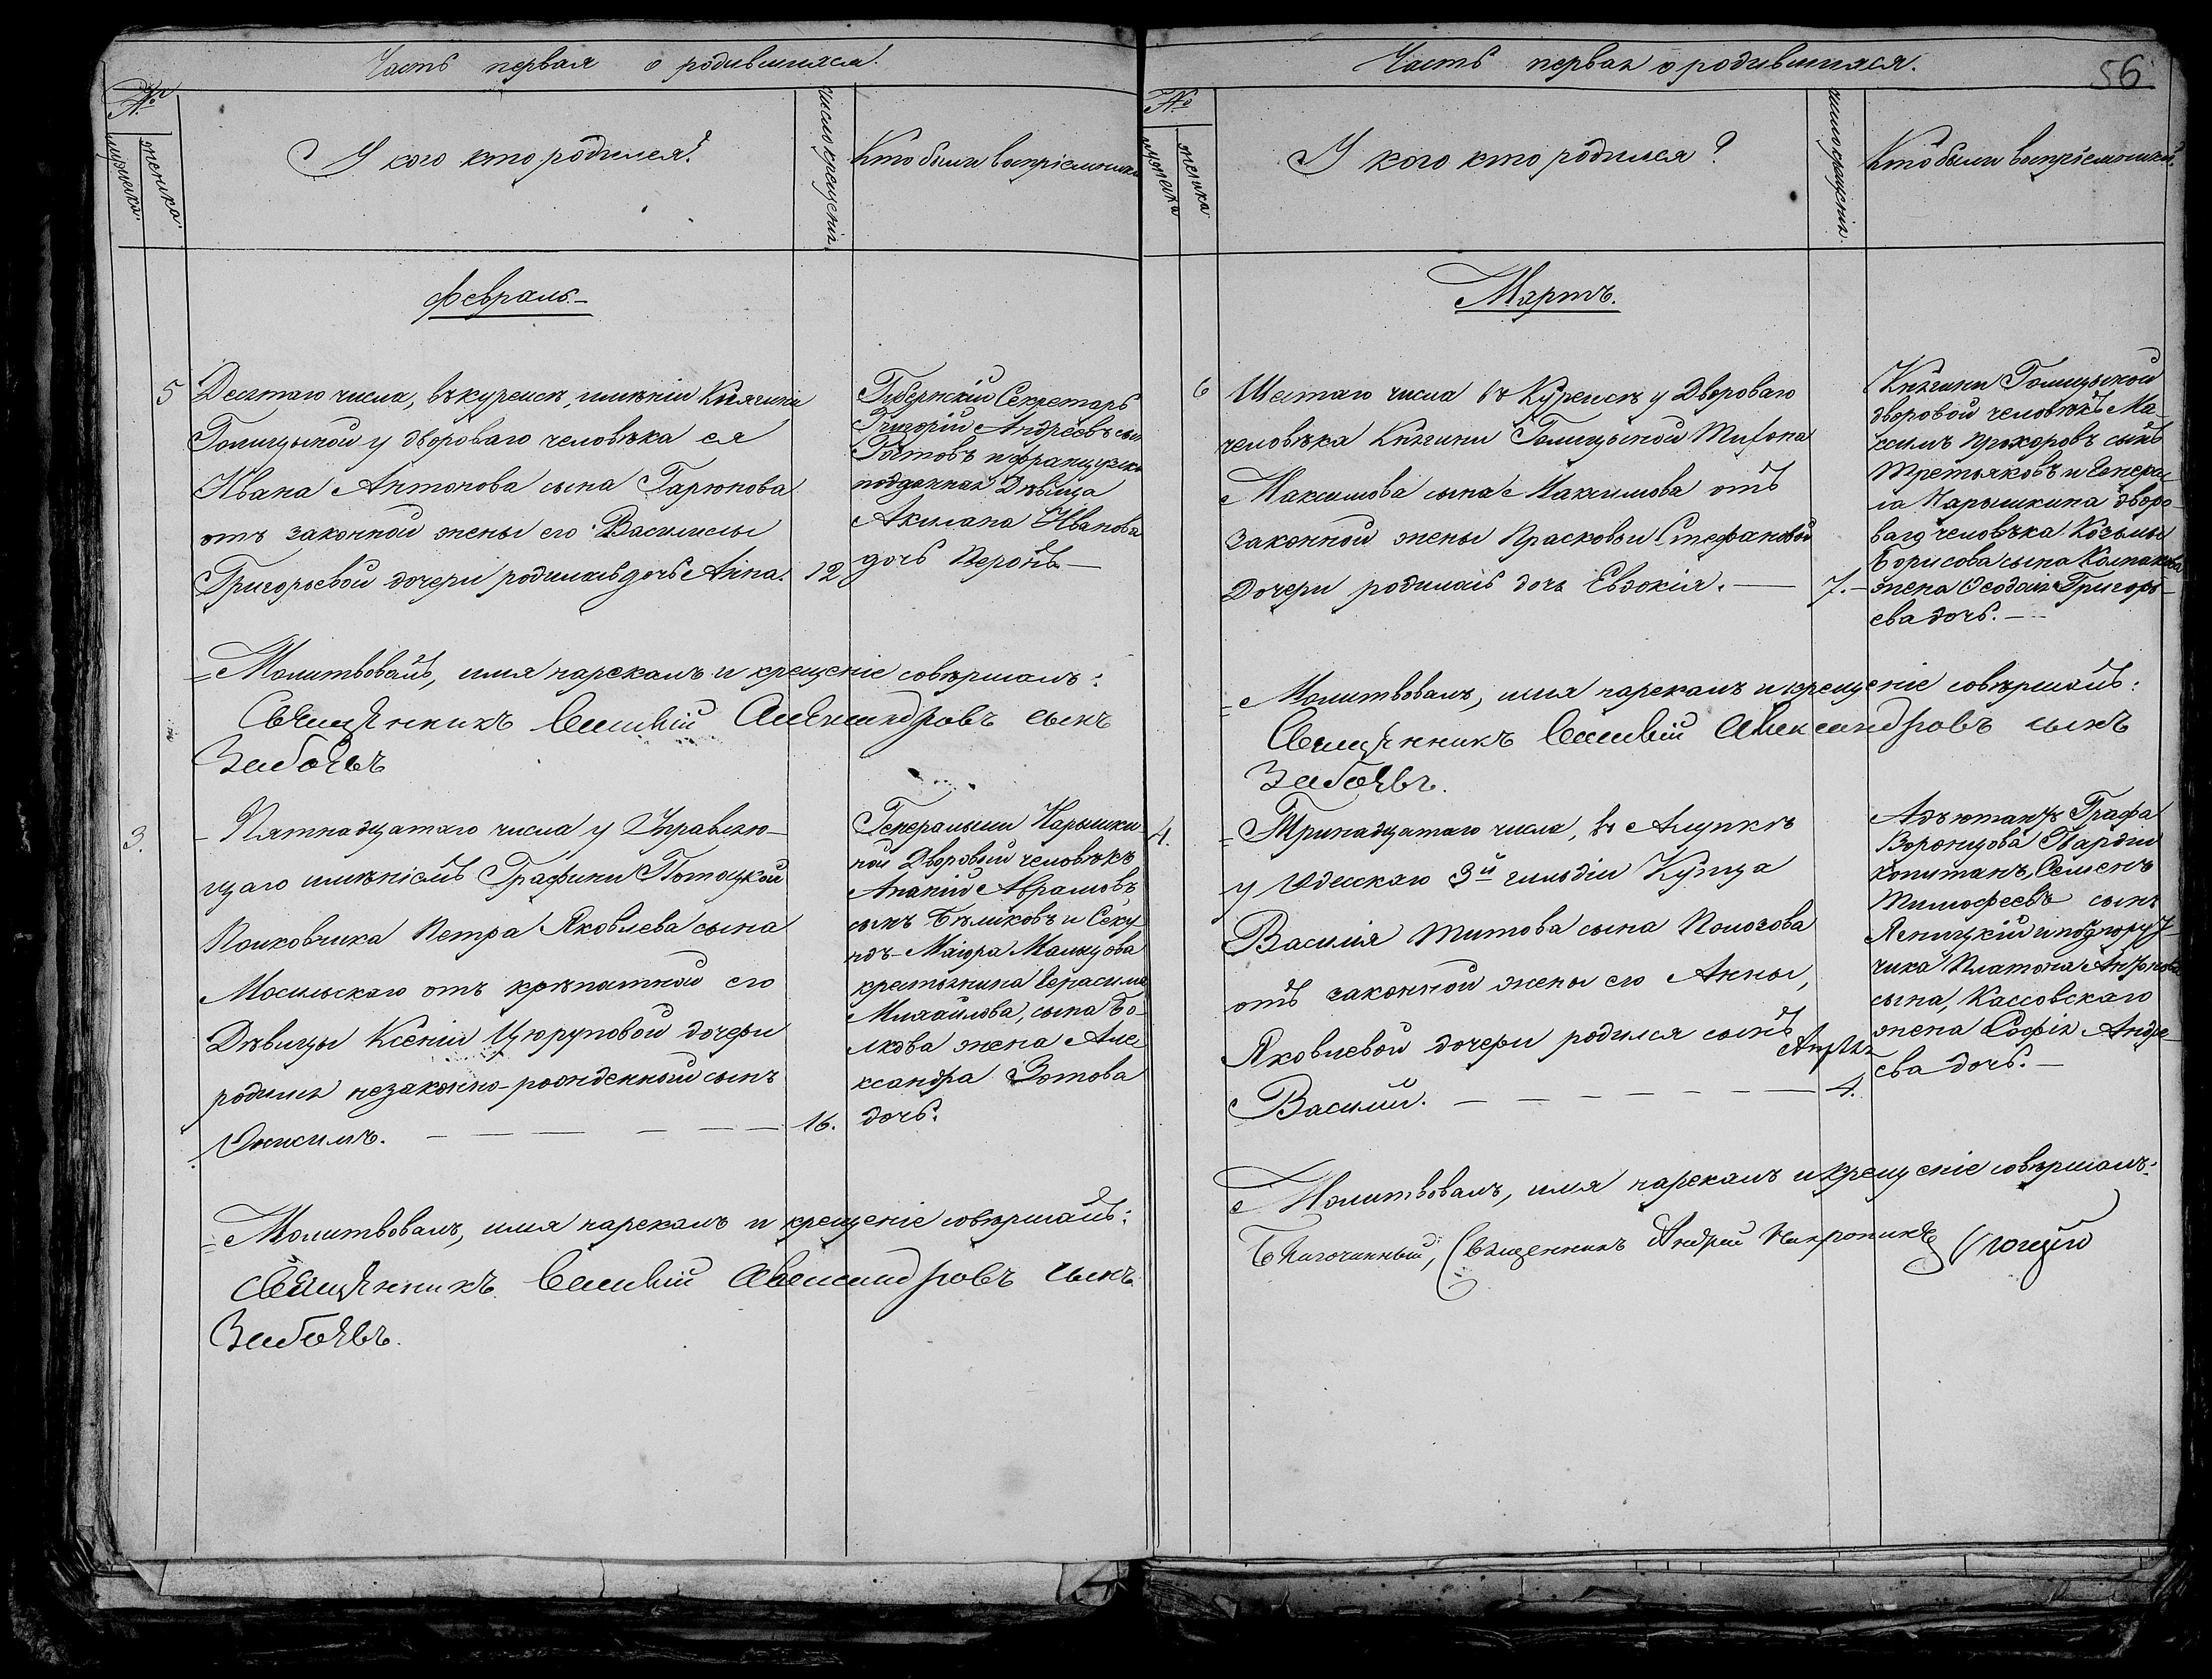 Часть первая о родившихся.
№
мужеска.
женска.
У кого кто родился?
число крещенія.
Кто были воспріемники
Февраль.
5
Десятаго числа, въ Куреисѣ, имѣніи Княгини
Голицыной у двороваго человѣка ея
Ивана Антонова сына Гарюнова
отъ законной жены его Василисы
Григорьевой дочери родилась дочь Анна.
12
Губернскій Секретарь
Григорій Андреевъ сынъ
и французско
подданная Дѣвица
Акилана Иванова
дочь
Молитвовалъ, имя нарекалъ и крещеніе совѣршалъ:
Священникъ Василій Александровъ сынъ
Забоевъ
3.
Пятнадцатаго числа у Управляю-
щаго имѣніемъ Графини Потоцкой
Полковника Петра Яковлева сына
Мосильскаго отъ крѣпостной его
Дѣвицы Ксеніи Цюруповой дочери
родился незаконно-рожденный сынъ
Онисимъ.
16.
Генеральши Нарышки-
ной Дворовый человѣкъ
Ананій Аврамовъ
сынъ Бѣликовъ и Секу
ндъ-Маіора Мальцова
крестьянина Герасима
Михайлова, сына Бо-
лкова жена Але
ксандра Зотова
дочь.
Молитвовалъ, имя нарекалъ и крещеніе совѣршалъ:
Священникъ Василій Александровъ сынъ
Забоевъ.
Часть первая о родившихся.
56
№
мужеска
женска
У кого кто родился?
число крещенія.
Кто были воспріемники.
Мартъ.
6
Шестаго числа въ Куреисѣ у Двороваго
человѣка Княгини Голицыной
Максимова сына Максимова отъ
законной жены Прасковьи Стефановой
дочери родилась дочь Евдокія.
7.
Княгини Голицыной
дворовой человѣкъ Ма-
ксимъ Прохоровъ сынъ
Третьяковъ и Генера
ла Нарышкина дворо-
ваго человѣка Козьмы
Борисова сына Колпакова
жена Ѳеодосія Григорь-
ева дочь.
Молитвовалъ, имя нарекалъ и крещеніе совѣршалъ:
Священникъ Василій Александровъ сынъ
Забоевъ.
4.
Тринадцатаго числа, въ Алупкѣ
у Одесскаго 3й гильдіи Купца
Василія Титова сына Пологова
отъ законной жены его Анны,
Яковлевой дочери родился сынъ
Василій.
Апрѣля
4.
Адъютантъ Графа
Воронцова Гвардіи
Капитанъ, Семенъ
Тимофеевъ сынъ
и подпору-
чика Платона Антонова
сына, Кассовскаго
жена Софія Андре-
ева дочь.
Молитвовалъ, имя нарекалъ и крещеніе совѣршалъ:
Благочинный, Священникъ Андрей